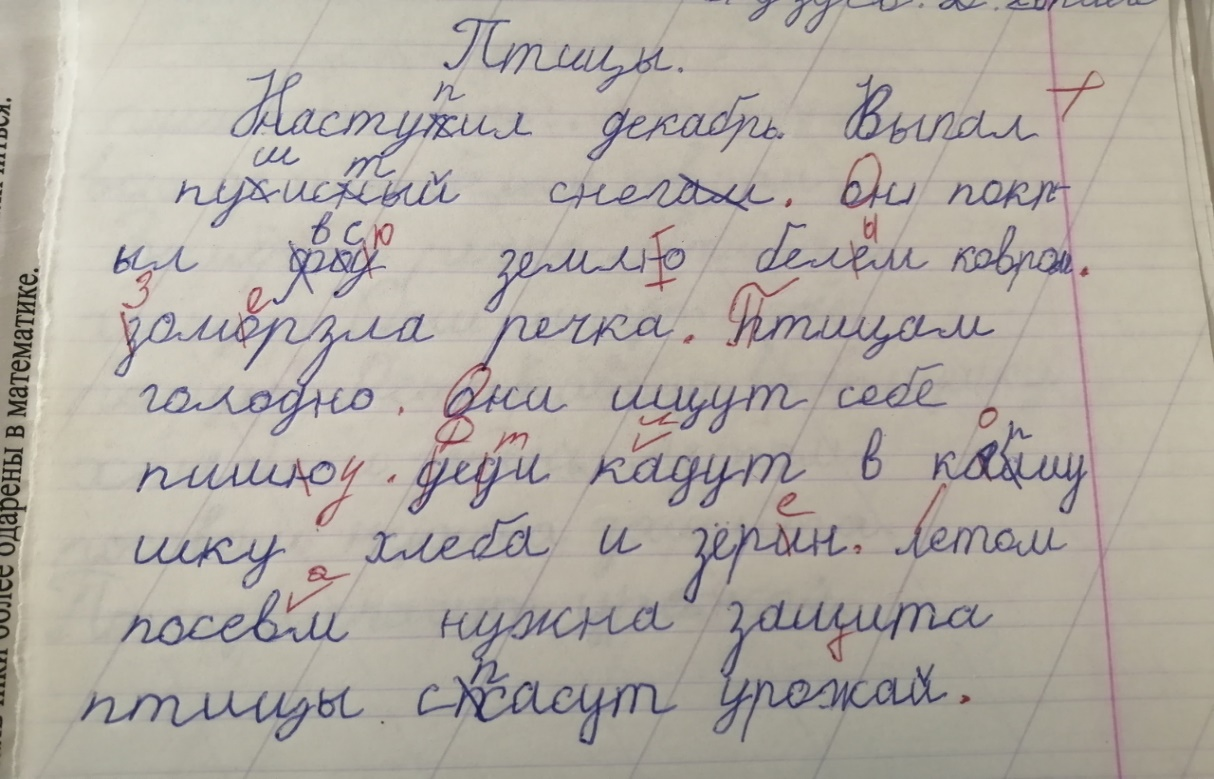 Птицы.
Наступил декабрь. Выпал
пушистый снег. Он покр-
ыл всю землю белым ковром.
Замерзла речка. Птицам
голодно. Они ищут себе
пищу. Дети кладут в копму
шку хлеба и зёрен. Летом
посевам нужна защита
птицы спасут урожай.
более одарены в математике.